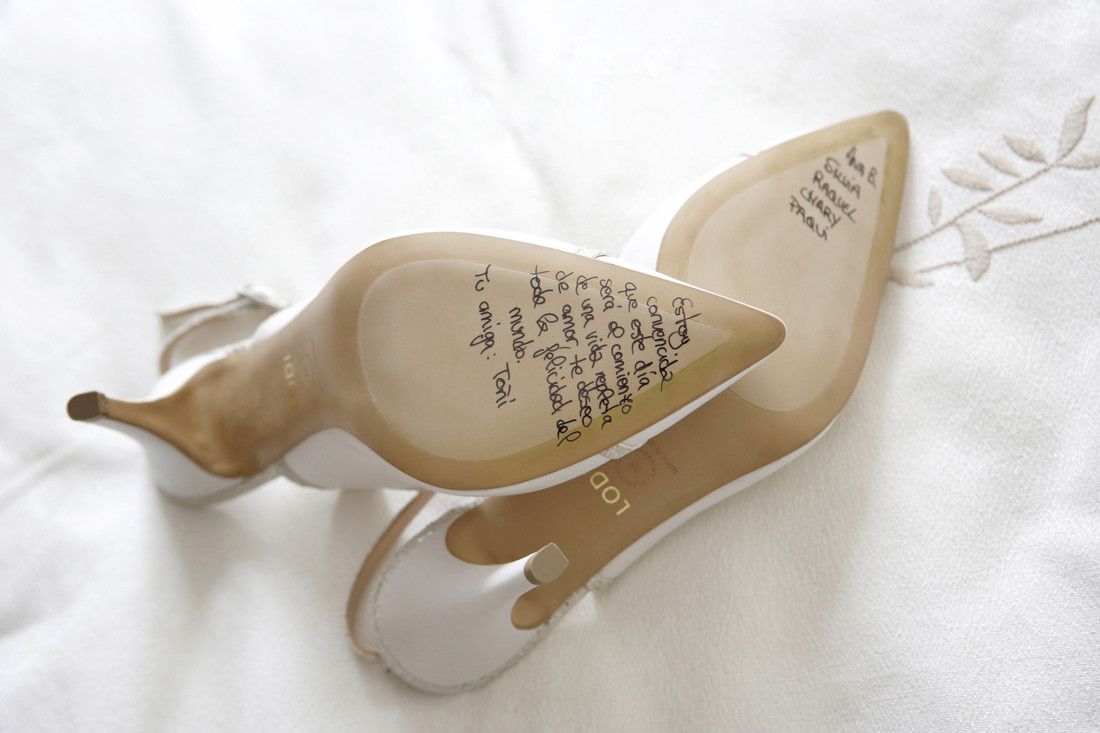 Estoy
convencida
que este día
será el comienzo
de una vida repleta
de amor, te deseo
toda la felicidad del
mundo.
Tu amiga: Toñi
Ana B.
SILVIA
RAQUEL
CHARY
PAQUI
LOD